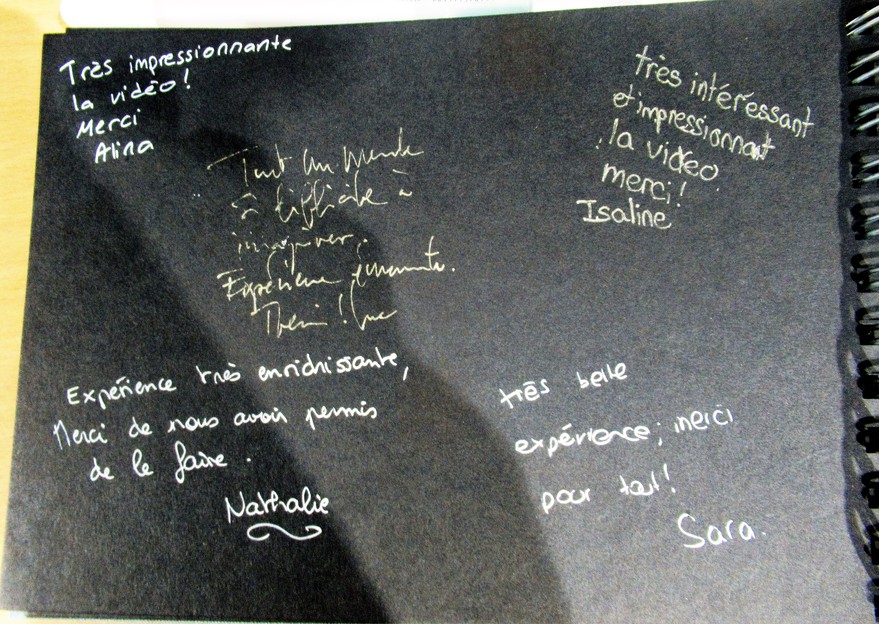 Très impressionnante
la vidéo!
Merci
Alina
très intéressant
et impressionnant
la vidéo
merci!
Isaline
Tout un monde
à
imaginer.
Expérience émouvante.
Merci!
Expérience très enrichissante,
Merci de nous avoir permis
de le faire.
Nathalie
très belle
expérience; merci
pour tout!
Sara.